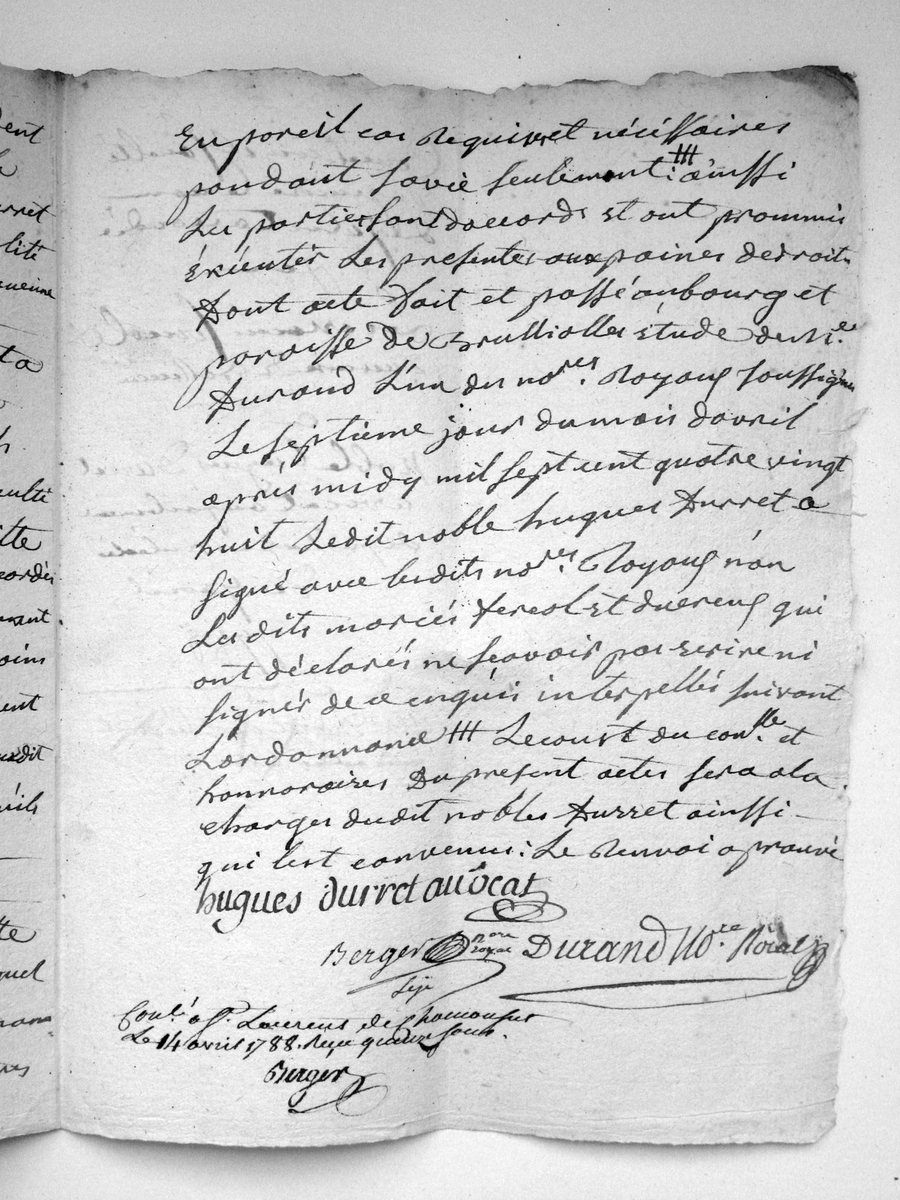 En pareil cas Requiset nécéssaires
pandant savie seulement : ainssi
Les parties sont daccords et ont prommis
éxécutér Les presentes aux paines dedroits
Dont acte fait et passé aubourg et
paroisse de Brullioles étude de Me
Durand L'un des nores. Royaux soussignes
Le septieme jour dumois davril
aprés midy mil sept cent quatre vingt
huit Ledit noble hugues Durret a
signé avec lesdits nores. Royaux nón
Les dits mariés et qui
ont déclarés ne scavoir pas ecrire ni
signér de ce enquis interpellés suivant
Lordonnance ┼┼┼ Lecoust du conlle. et
honnoraires Du present actes sera ala
charges dudit nobles Durret ainssi
qui lest convenus : Le Renvoi aprouvé
hugues durret avocat
Berger nore royal DURAND No.re Roial
Conlé. a St. Laurens de Chamousset
Le 14 avril 1788. Reçu quinze sous.
Berger
dent
rret
lité
ta
itte
ment
oins
ent
quel